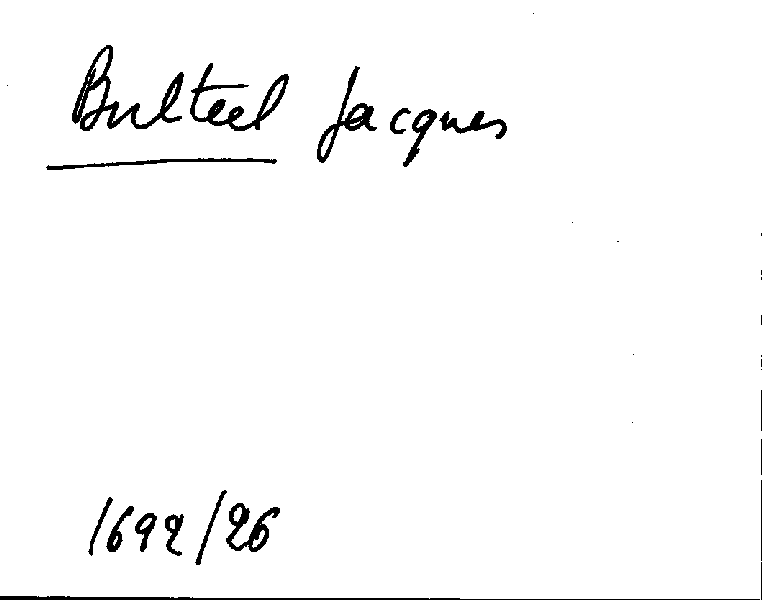 Bulteel Jacques
1692/26